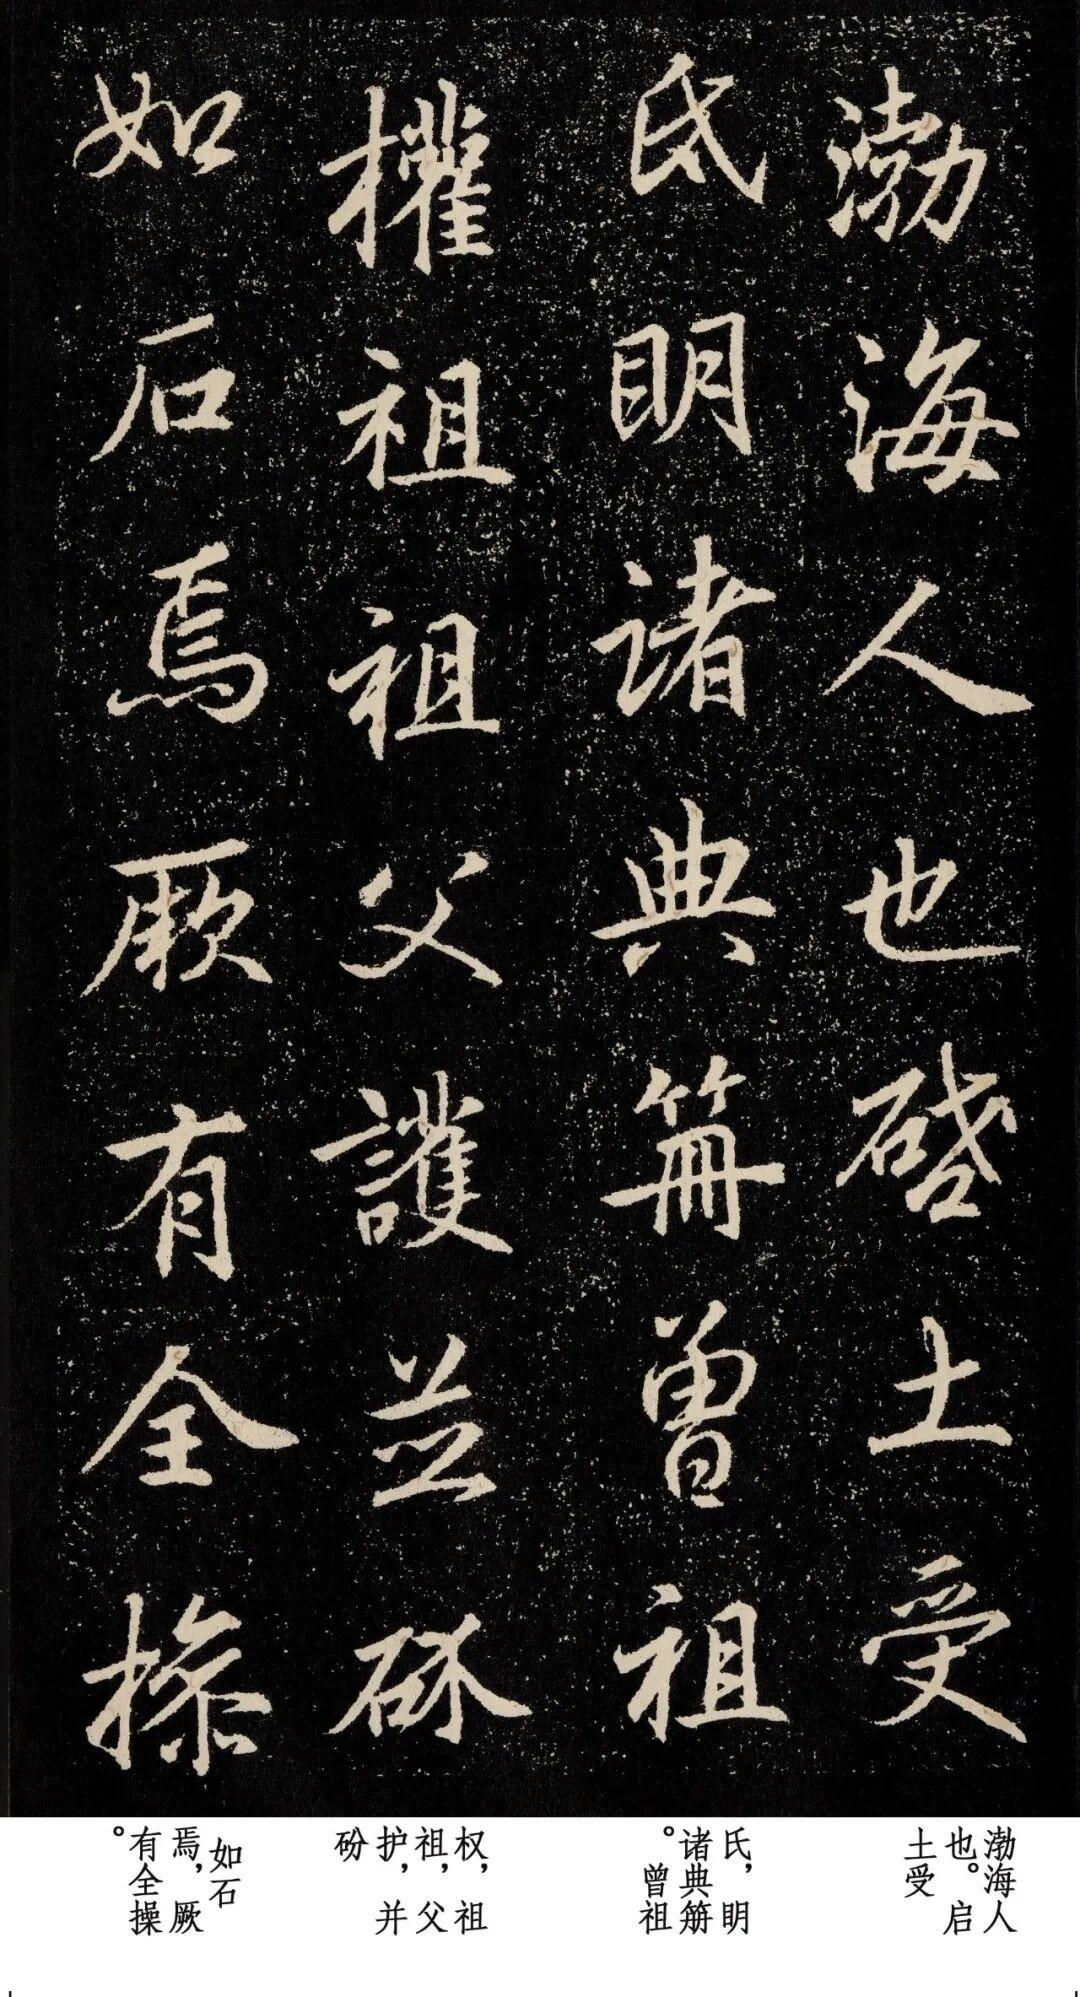 渤海人也啓土受
氏眀諸典笧曾祖
權祖祖父護並砎
如石焉厥有全操
渤海人
也。启
土受
氏，眀
诸典笧
。曾祖
权，祖
祖，父
护，并
砏
如石
焉，厥
有全操
。